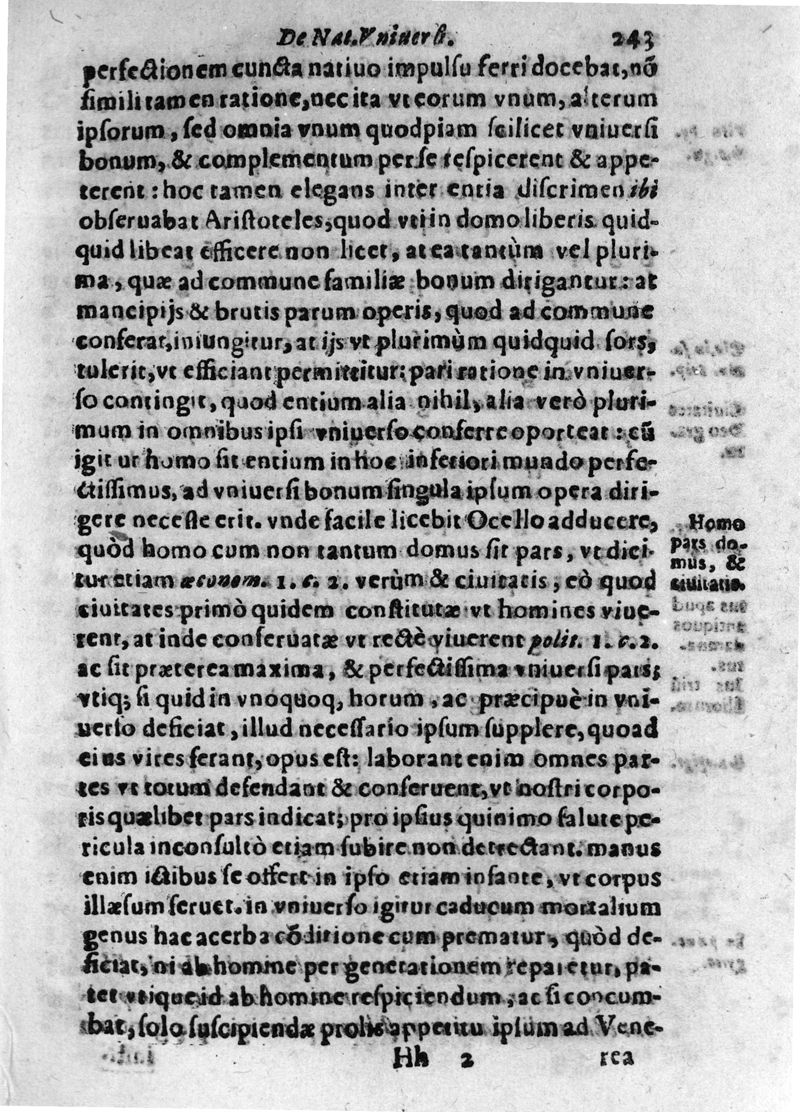 De Nat. Vniuers. 243
perfectionem cuncta natiuo impulsu ferri docebat, nõ
simili tamen ratione, nec ita vt eorum vnum, alterum
ipsorum, sed omnia vnum quodpiam scilicet vniuersi
bonum, & complementum per se respicerent & appe-
terent: hoc tamen elegans inter entia discrimen ibi
obseruabat Aristoteles, quod vti in domo liberis quid-
quid libeat efficere non licet, at ea tantùm vel pluri-
ma, quæ ad commune familiæ bonum dirigantur: at
mancipijs & brutis parum operis, quod ad commune
conferat, iniungitur, at ijs vt plurimùm quidquid sors,
tulerit, vt efficiant permittitur: pari ratione in vniuer-
so contingit, quod entium alia nihil, alia verò pluri-
mum in omnibus ipsi vniuerso conferre oporteat: cũ
igit ur homo sit entium in hoc inferiori mundo perfe-
ctissimus, ad vniuersi bonum singula ipsum opera diri-
gere necesse erit. vnde facile licebit Ocello adducere,
quòd homo cum non tantum domus sit pars, vt dici-
tur etiam œconom. 1. c. 2. verùm & ciuitatis, eò quod
ciuitates primò quidem constitutæ vt homines viue-
rent, at inde conseruatæ vt rectè viuerent polit. 1. c. 2.
ac sit præterea maxima, & perfectissima vniuersi pars;
vtiq; si quid in vnoquoq, horum, ac præcipuè in vni-
uerso deficiat, illud necessario ipsum supplere, quoad
eius vires ferant, opus est: laborant enim omnes par-
tes vt totum defendant & conseruent, vt nostri corpo-
ris quælibet pars indicat; pro ipsius quinimo salute pe-
ricula inconsultò etiam subire non detrectant. manus
enim ictibus se offert in ipso etiam infante, vt corpus
illæsum seruet. in vniuerso igitur caducum mortalium
genus hac acerba cõditione cum prematur, quòd de-
ficiat, ni ab homine per generationem reparetur, pa-
tet vtique id ab homine respiciendum, ac si concum-
bat, solo suscipiendæ prolis appetitu ipsum ad Vene-
Hh 2 rea
Homo
pars do-
mus, &
ciuitatis.